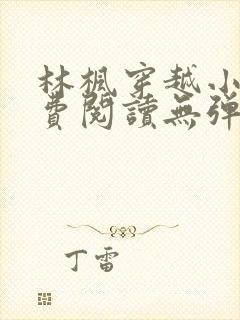 林楓穿越小
費閱讀無弹
丁雷